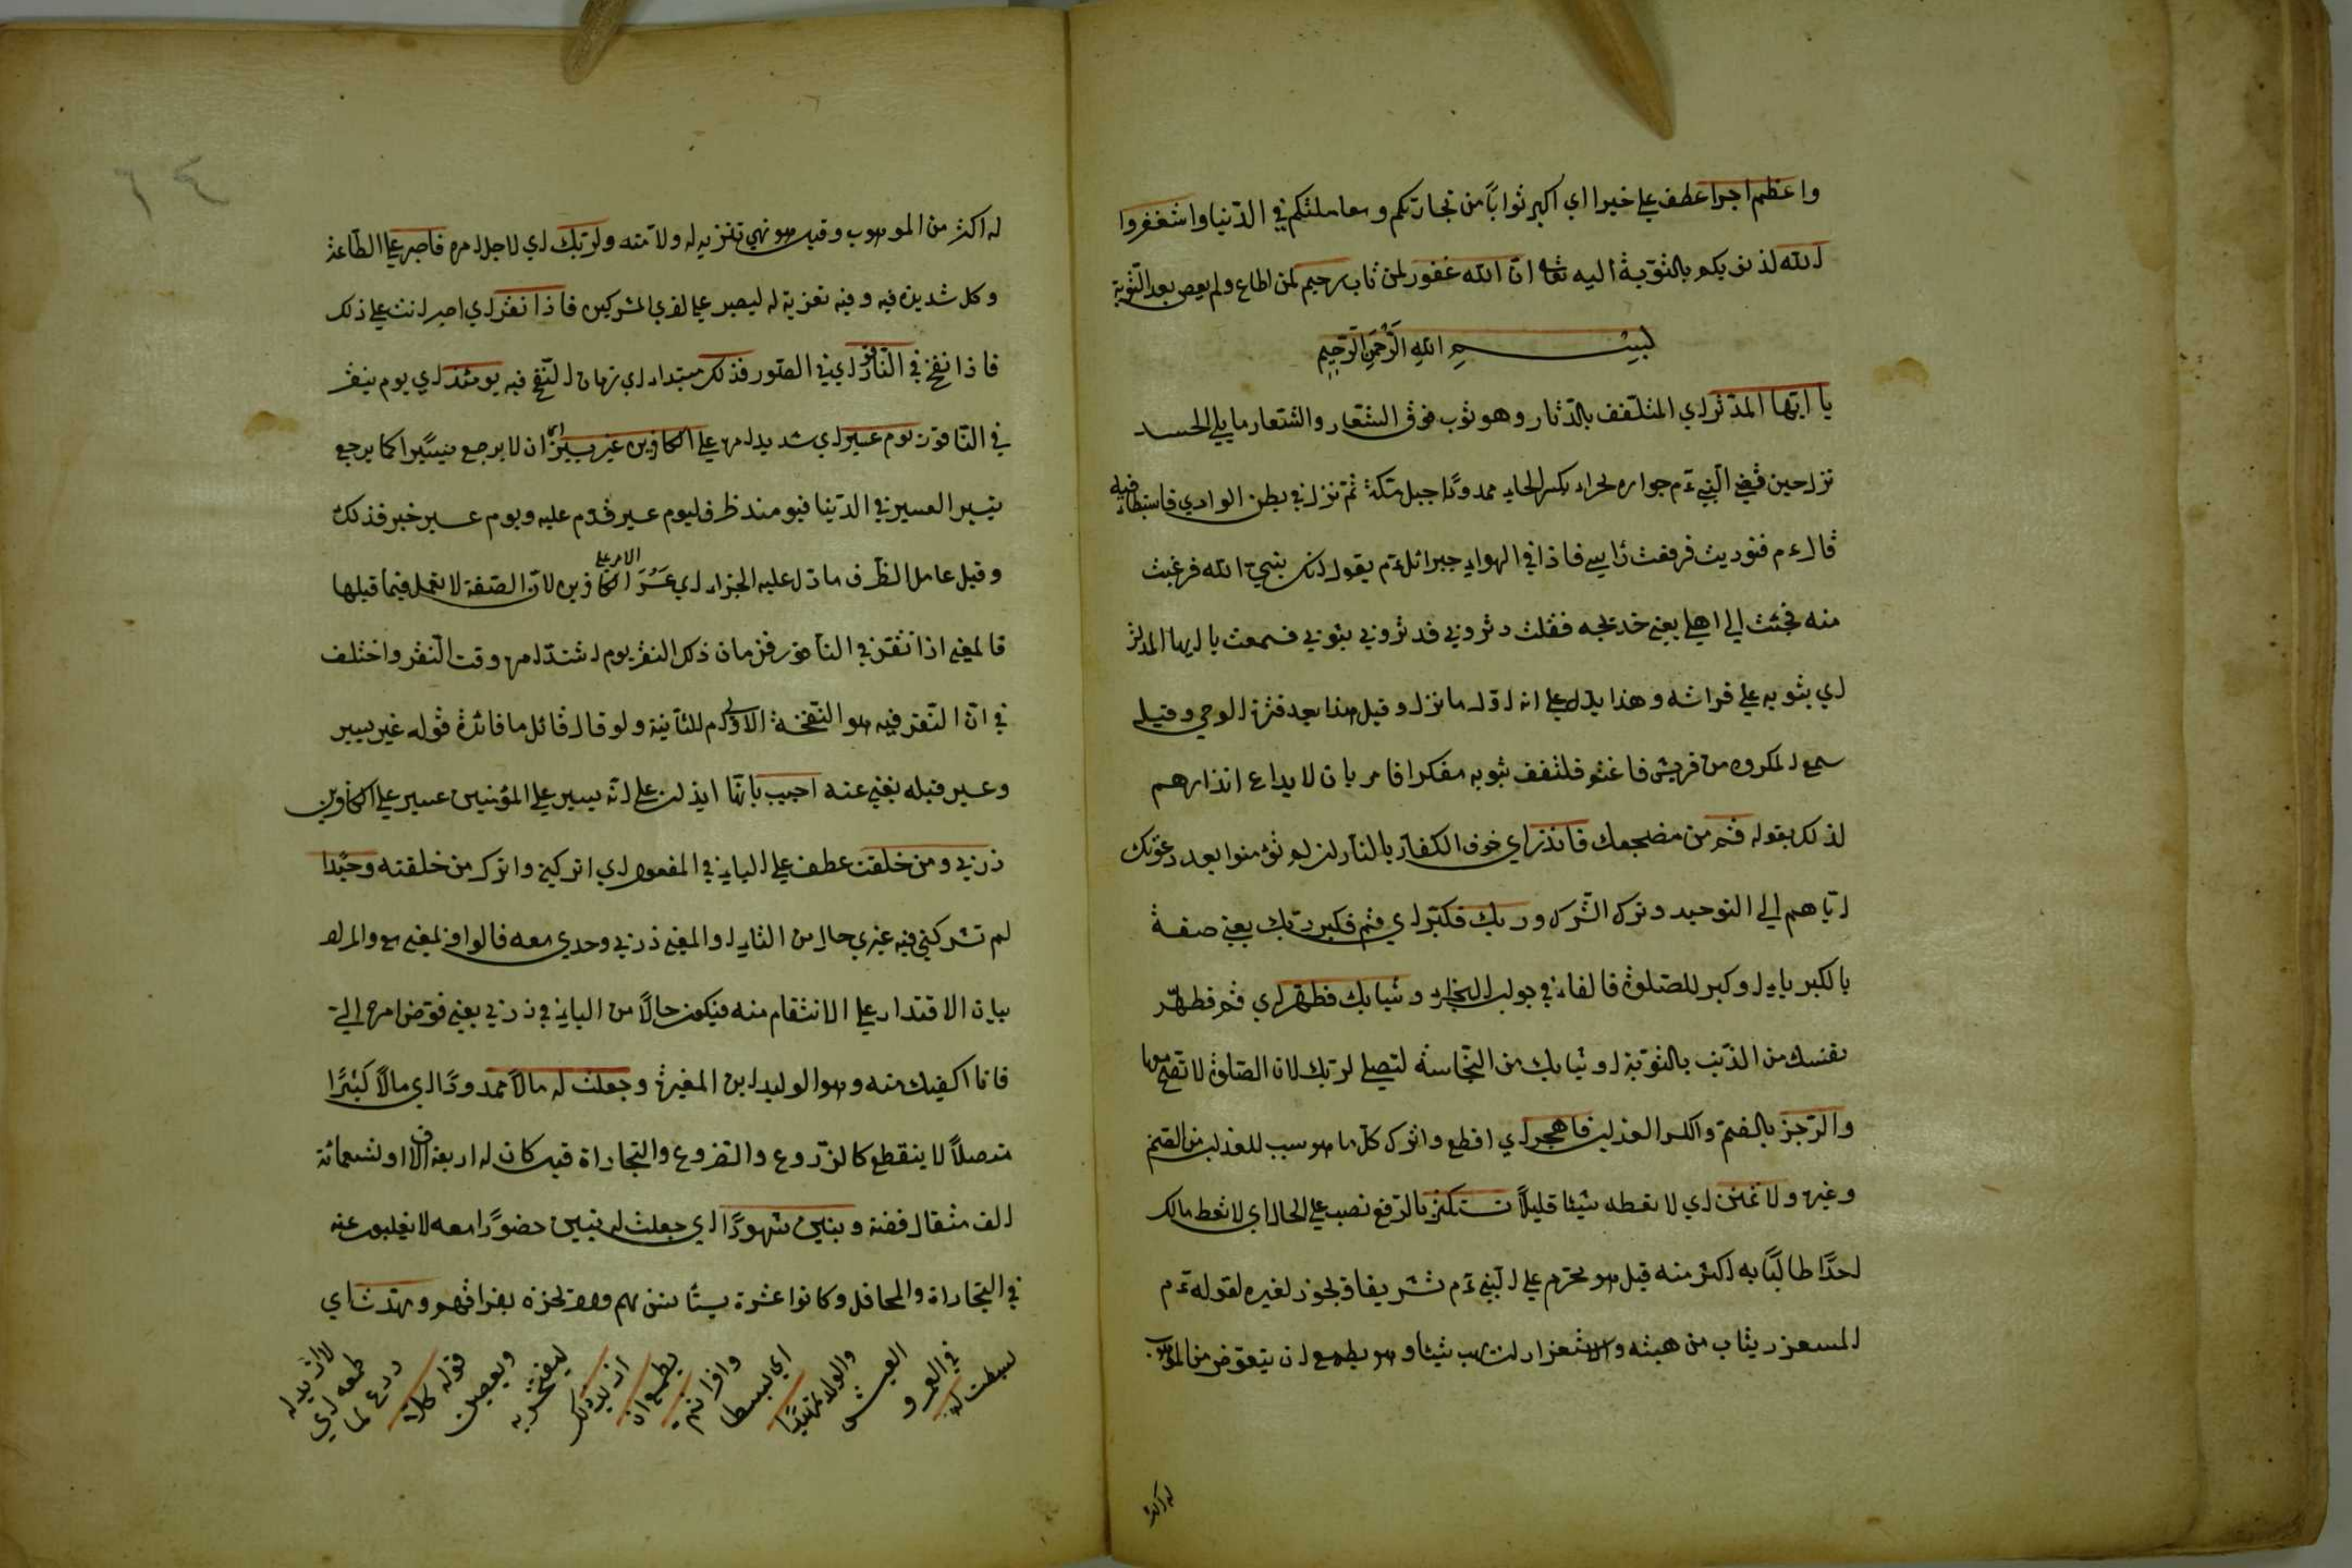 واعظم اجرا عطف علي خيرا اي اكبر ثوابًا من تجارتكم ومعاملتكم في الدّنيا واستغفروا
الله لذنوبكم بالتّوبة اليه تعا انّ الله غفور لمن تاب رحيم لمن اطاع ولم يعص بعد التّوبة
بسم الله الرّحمن الرّحيم
يا ايّها المدّثر اي المتلفّف بالدّثار وهو ثوب فوق الشّعار والشّعار ما يلي الجسد
نزل حين قضي النّبي ءم جواره لحراء بكسر الحاء ممدودًا جبل مكّة ثمّ نزل في بطن الوادي فاستبطا فيه
قال ءم فنوديت فرفعت رٔاسي فاذا في الهواء جبرائل ءم يقول انك نبيّ الله فرعبت
منه فجئت الي اهلي يعني خديجه فقلت دثروني فدثروني بثوبي فسمعت يا ايها المدثر
اي بثوبه علي فراشه وهذا يدل علي انه اوّل ما نزل وقيل هذا بعد فترة الوحي وقيل
سمع المكروه من قريش فاغتم فلتفف بثوبه مفكرا فامر بان لا يداع انذارهم
لذلك بقوله قم من مضجعك فانذر اي خوف الكفّار بالنّار ان لم يؤمنوا بعد دعوتك
ايّاهم الي التوحيد وترك الشّرك وربك فكبّر اي قم فكبر ربّك يعني صفة
بالكبرياء او كبر للصّلوة فالفاء في جواب الجزاء وثيابك فطهّر اي قم فطهّر
نفسك من الذّنب بالتّوبة او ثيابك من النّجاسة لتصلي لربّك لان الصّلوة لا تصحّ معها
والرّجز بالضمّ والكسر العذاب فاهجر اي اقطع واترك كلّ ما هو سبب للعذاب من الصّنم
وغيره ولا تمنن اي لا تعطه شيئا قليلًا تستكثر بالرّفع نصب علي الحال اي لا تعط مالك
احدًا طالبًا به اكثر منه قيل هو محرّم علي النّبي ءم تشريفا ويجوز لغيره لقوله ءم
المستغزر يثاب من هبته والاستغزار ان يهب شيئا وهو يطمع ان يتعوّض من الموهوب
له اكثر
له اكثر من الموهوب وقيل هو نهي تنزيه له ولامّته ولربّك اي لاجل امره فاصبر علي الطّاعة
وكل شديدة فيه وفيه تعزية له ليصبر علي اذي المشركين فاذا نقر اي اصبر انت علي ذلك
فاذا نفخ في النّاقور اي في الصّور فذلك مبتداء اي زمان النّفخ فيه يومئذ اي يوم ينفر
في النّاقور يوم عسير اي شديد امره علي الكافرين غير يسير اي ان لا يرجع يسيرًا كما يرجع
يسيرا العسير في الدّنيا فيومئذ ظرف ليوم عسير قدّم عليه ويوم عسير خبر فذلك
وقيل عامل الظّرف ما دلّ عليه الجزاء اي عَسُرَ الامر علي الكافرين لانّ الصّفة لا تعمل فيما قبلها
فالمعني اذا نقر في النّاقور فزمان ذلك النقر يوم اشتدّ امره وقت النّقر واختلف
في انّ النّقر فيه هو النّفخة الاولي ام للثّانية ولو قال قائل ما فائدة قوله غير يسير
وعسير قبله يغني عنه اجيب بانّها ايذان علي انّه يسير علي المؤمنين عسير علي الكافرين
ذرني ومن خلقت عطف علي الياء في المفعول اي اتركني واترك من خلقته وحيدًا
لم تشركني فيه غيري حال من التاء او المعني ذرني وحدي معه فالواو لمعني مع والمراد
بيان الاقتدار علي الانتقام منه فيكون حالًا من الياء في ذرني يعني فوّض امره اليّ
فانا اكفيك منه وهو الوليد ابن المغيرة وجعلت له مالًا ممدودًا اي مالًا كثيرًا
متصلًا لا ينقطع كالزّروع والضّروع والتّجاراة قيل كان له اربعة الاف او تسعمائة
الف مثقال فضة وبنين شهودًا اي جعلت له بنين حضورًا معه لا يغلبون عنه
في التّجاراة والمحافل وكانوا عشرة يستٔانس بهم ولا يحزن بفراقهم ومهّدت اي
بسطت له
في العمر و
العيش
والولد تمهيدًا
اي بسطا
وافرا ثم
يطمع ان
ازيد ذلك
ليفتخر به
ويعصين
قوله كلّا
ردع لما
طمعه اي
لا ازيد له